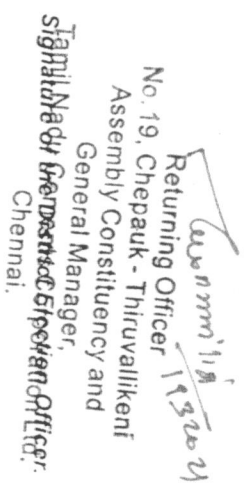 1932021
Returning Officer
No. 19, Chepauk - Thiruvallikeni
Assembly Constituency and
General Manager,
Tamil Nadu
Signature of the District Election Officer.
Chennai.